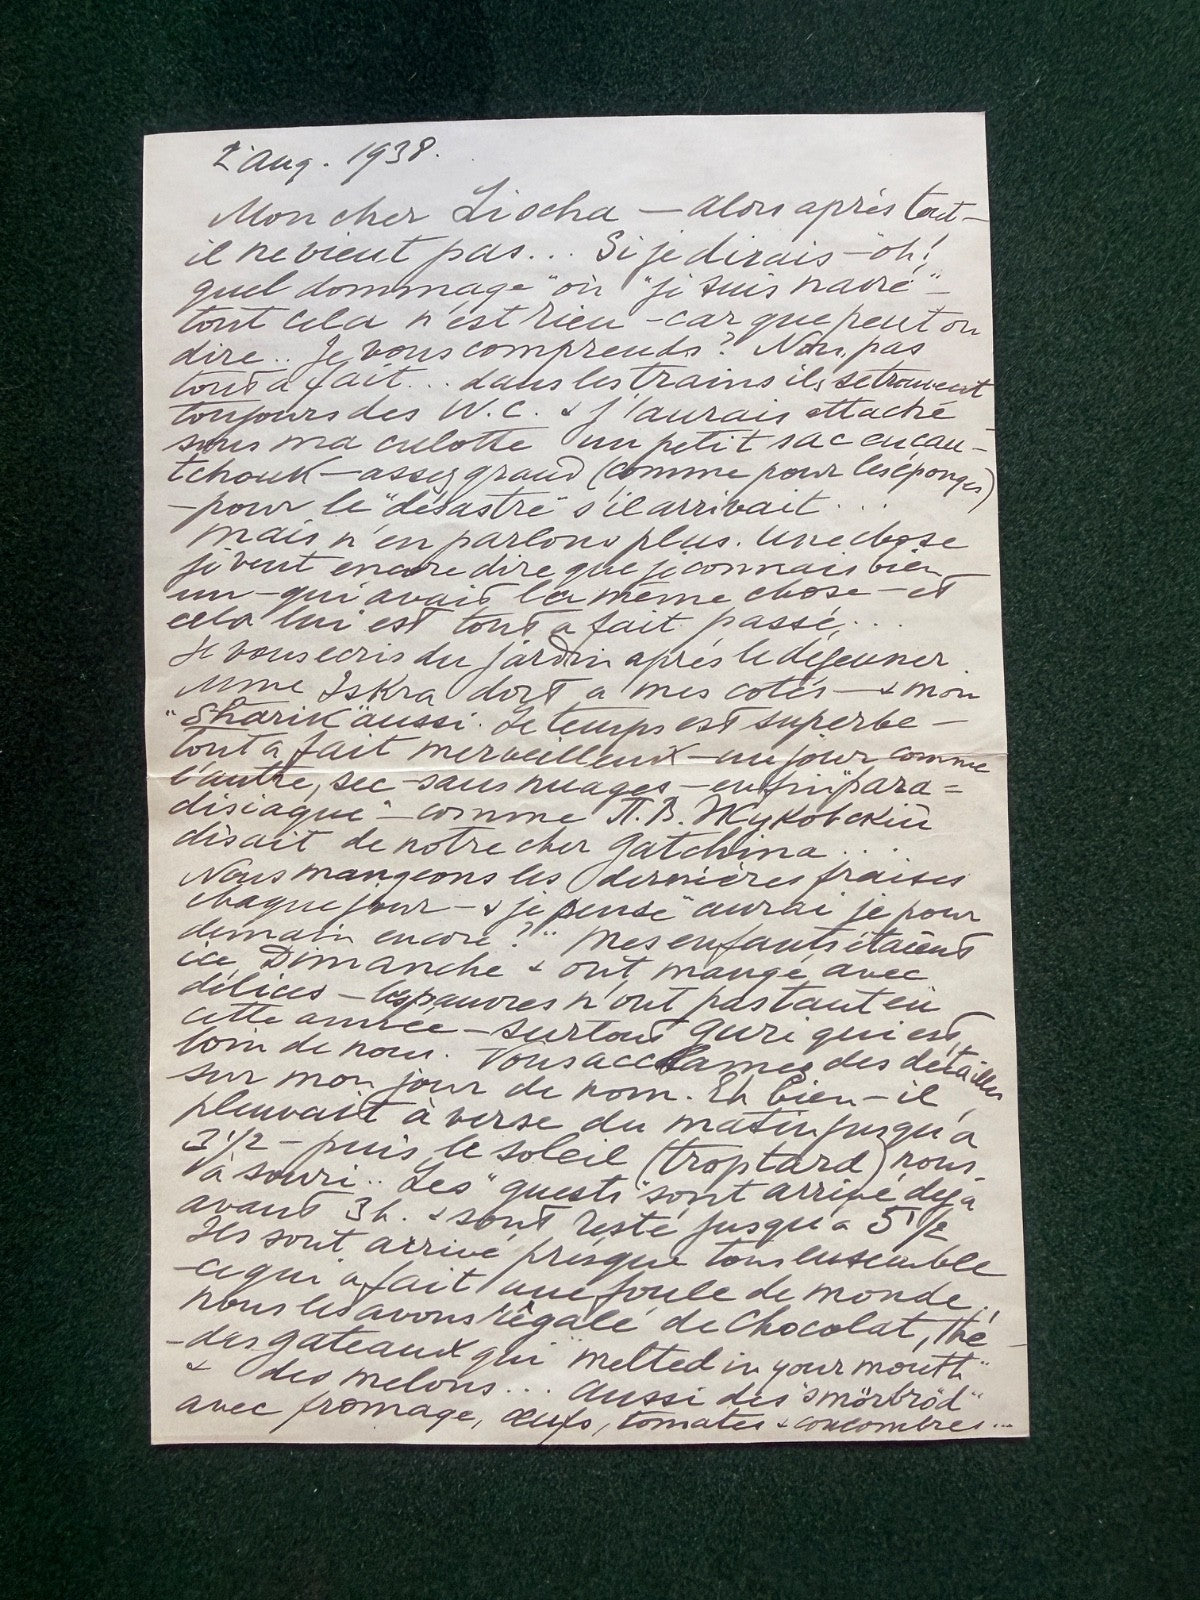 2 Aug. 1938.
Mon cher Lischa — alors après tout —
il ne vient pas... Si je dirais — "oh!
quel dommage" où "je suis navré" —
tout cela n'est rien — car que peut on
dire.. Je vous comprends? Non, pas
tout à fait... dans les trains ils se trouvent
toujours des W.C. & j'aurais attaché
sous ma culotte un petit sac en cau-
tchouk — assez grand (comme pour les éponges)
— pour le "désastre" s'il arrivait...
Mais n'en parlons plus. Une chose
je veut encore dire que je connais bien
un — qui avait la même chose — et
cela lui est tout à fait passé...
Je vous ecris du jardin après le dejeuner.
Mme Iskra dort a mes cotés — & mon
"Sharik" aussi. Le temps est superbe —
tout à fait merveilleux — un jour comme
l'autre, sec — sans nuages — enfin "para=
disiaque" — comme П.В. Жуковскій
disait de notre cher Gatchina...
Nous mangeons les dernières fraises
chaque jour — & je pense "aurai je pour
demain encore?" Mes enfants étaient
ici Dimanche & ont mangé avec
délices — les pauvres n'ont pas tant eu
cette année — surtout Guri qui est
loin de nous. Vous acclamez des détailles
sur mon jour de nom. Eh bien — il
pleuvait à verse du matin jusqu'a
3 1/2 — puis le soleil (trop tard) nous
à souri.. Les "guests" sont arrivé déjà
avant 3 h. & sont resté jusqu'a 5 1/2
Ils sont arrivé presque tous ensemble
— ce qui a fait une foule de monde.
Nous les avons régalé de Chocolat, thé —
— des gateaux qui "melted in your mouth"
& des melons... Aussi des "smörbröd"
avec fromage, œufs, tomates & concombres...